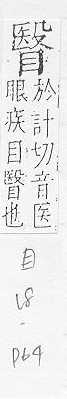 翳
於計切音医
眼疾目翳也
目
18
.
P64